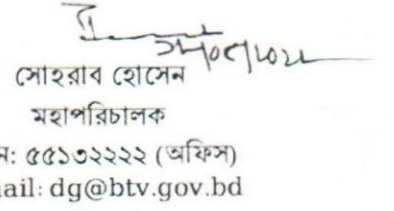 সোহরাব হোসেন
মহাপরিচালক
ন: ৫৫১৩২২২২ (অফিস)
ail: dg@btv.gov.bd